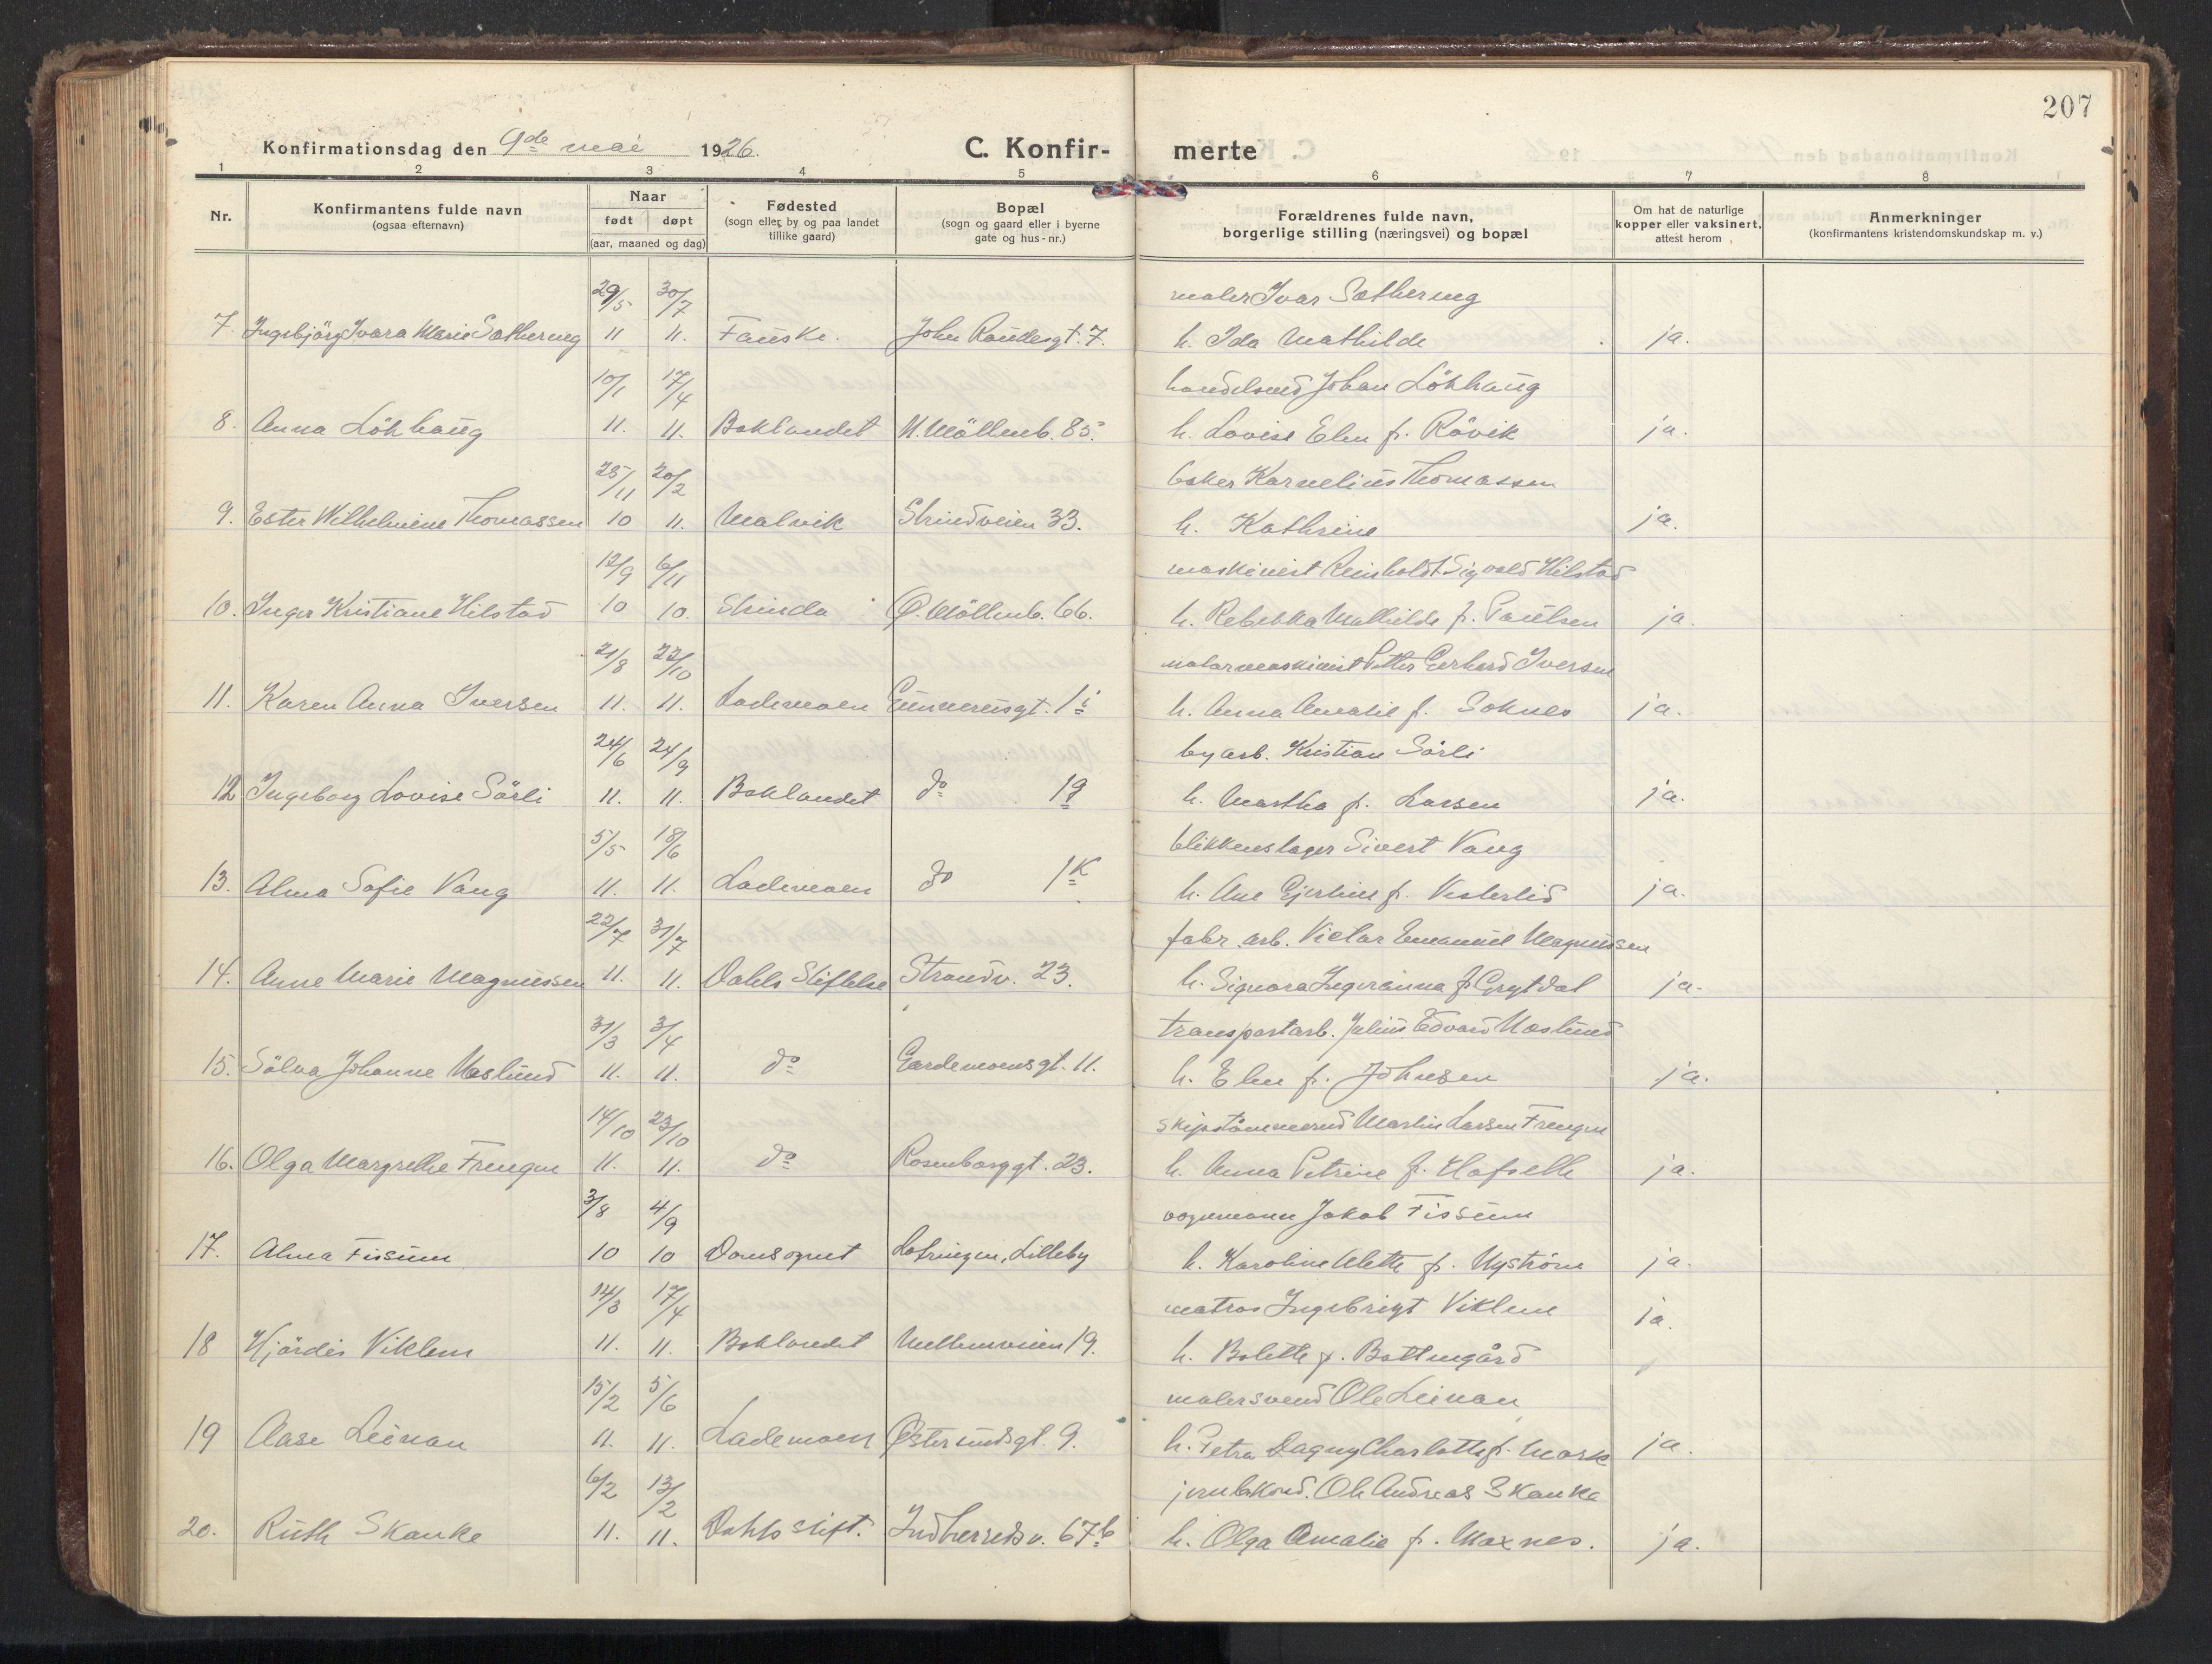 207
Konfirmationsdag den 9de mai 1926. C. Konfir- merte
1 2 3 4 5 6 7 8
Nr. Konfirmantens fulde navn (ogsaa efternavn) Naar født døpt (aar, maaned og dag) Fødested (sogn eller by og paa landet tillike gaard) Bopæl (sogn og gaard eller i byerne gate og hus-nr.) Forældrenes fulde navn, borgerlige stilling (næringsvei) og bopæl Om hat de naturlige kopper eller vaksinert, attest herom Anmerkninger (konfirmantens kristendomskundskap m. v.)
29/5 30/7 maler Ivar Sætherug
7. Ingebjörg Ivara Marie Sætherug 11 11. Fauske. John Raudesgt. 7. h. Ida Mathilde ja.
10/1 17/4 handelsmd Johan Lökhaug
8. Anna Lökhaug 11. 11. Baklandet N. Möllenb. 85. h. Lovise Elen f. Rövik ja.
25/11 20/2 Karnelius Thomassen
9. Ester Wilhelmine Thomassen 10 11. Malvik Strindveien 33. h. Kathrine ja.
12/9 6/11 maskinist Reinholdt Sigvald Hilstad
10. Inger Kristiane Hilstad 10 10. Strinda Ø. Möllenb. 66. h. Rebekka Mathilde f. Paulsen ja.
21/8 22/10 motormaskinist Petter Gerhard Iversen
11. Karen Anna Iversen 11. 11. Lademoen Gunnerusgt. 1i h. Anna Amalie f. Soknes ja.
24/6 24/9 byarb. Kristian Sörli
12 Ingeborg Lovise Sörli 11. 11. Baklandet do 1g h. Martha f. Larsen ja.
5/5 18/6 blikkenslager Sivert Vang
13. Alma Sofie Vang 11. 11. Lademoen do 1K h. Ane Gjertine f. Vesterlid ja.
22/7 31/7 fabr. arb. Victor Emanuel Magnussen
14. Anne Marie Magnussen 11. 11. Dahls Stiftelse Strandv. 23. h. Signora Ingeranna f. Grytdal ja.
31/3 3/4 transportarb. Julius Edvard Moslund
15. Sölva Johanne Moslund 11. 11. do Gardemoensgt. 11. h. Elen f. Johnsen ja.
14/10 23/10 skipstömmermd Martin Larsen Frengen
16. Olga Margrethe Frengen 11. 11. do Rosenborggt. 23. h. Anna Petrine f. Hafselle ja.
3/8 4/9 vognmann Jakob Fissum
17. Alma Fissum 10 10 Domsognet Lotringen, Lilleby h. Karoline Mette f. Nyström ja.
14/3 17/4 matros Ingebrigt Viklem
18 Hjördis Viklem 11. 11. Baklandet Mellemveien 19. h. Bolette f. Battengård ja.
15/2 5/6 malersvend Ole Leinan
19 Aase Leinan 11. 11. Lademoen Østersundsgt. 9. h. Petra Dagny Charlotte f. Mork ja.
6/2 13/2 jernbkond. Ole Andreas Skanke
20. Ruth Skanke 11. 11. Dahls stift. Indherredsv. 67b h. Olga Amalie f. Moxnes. ja.